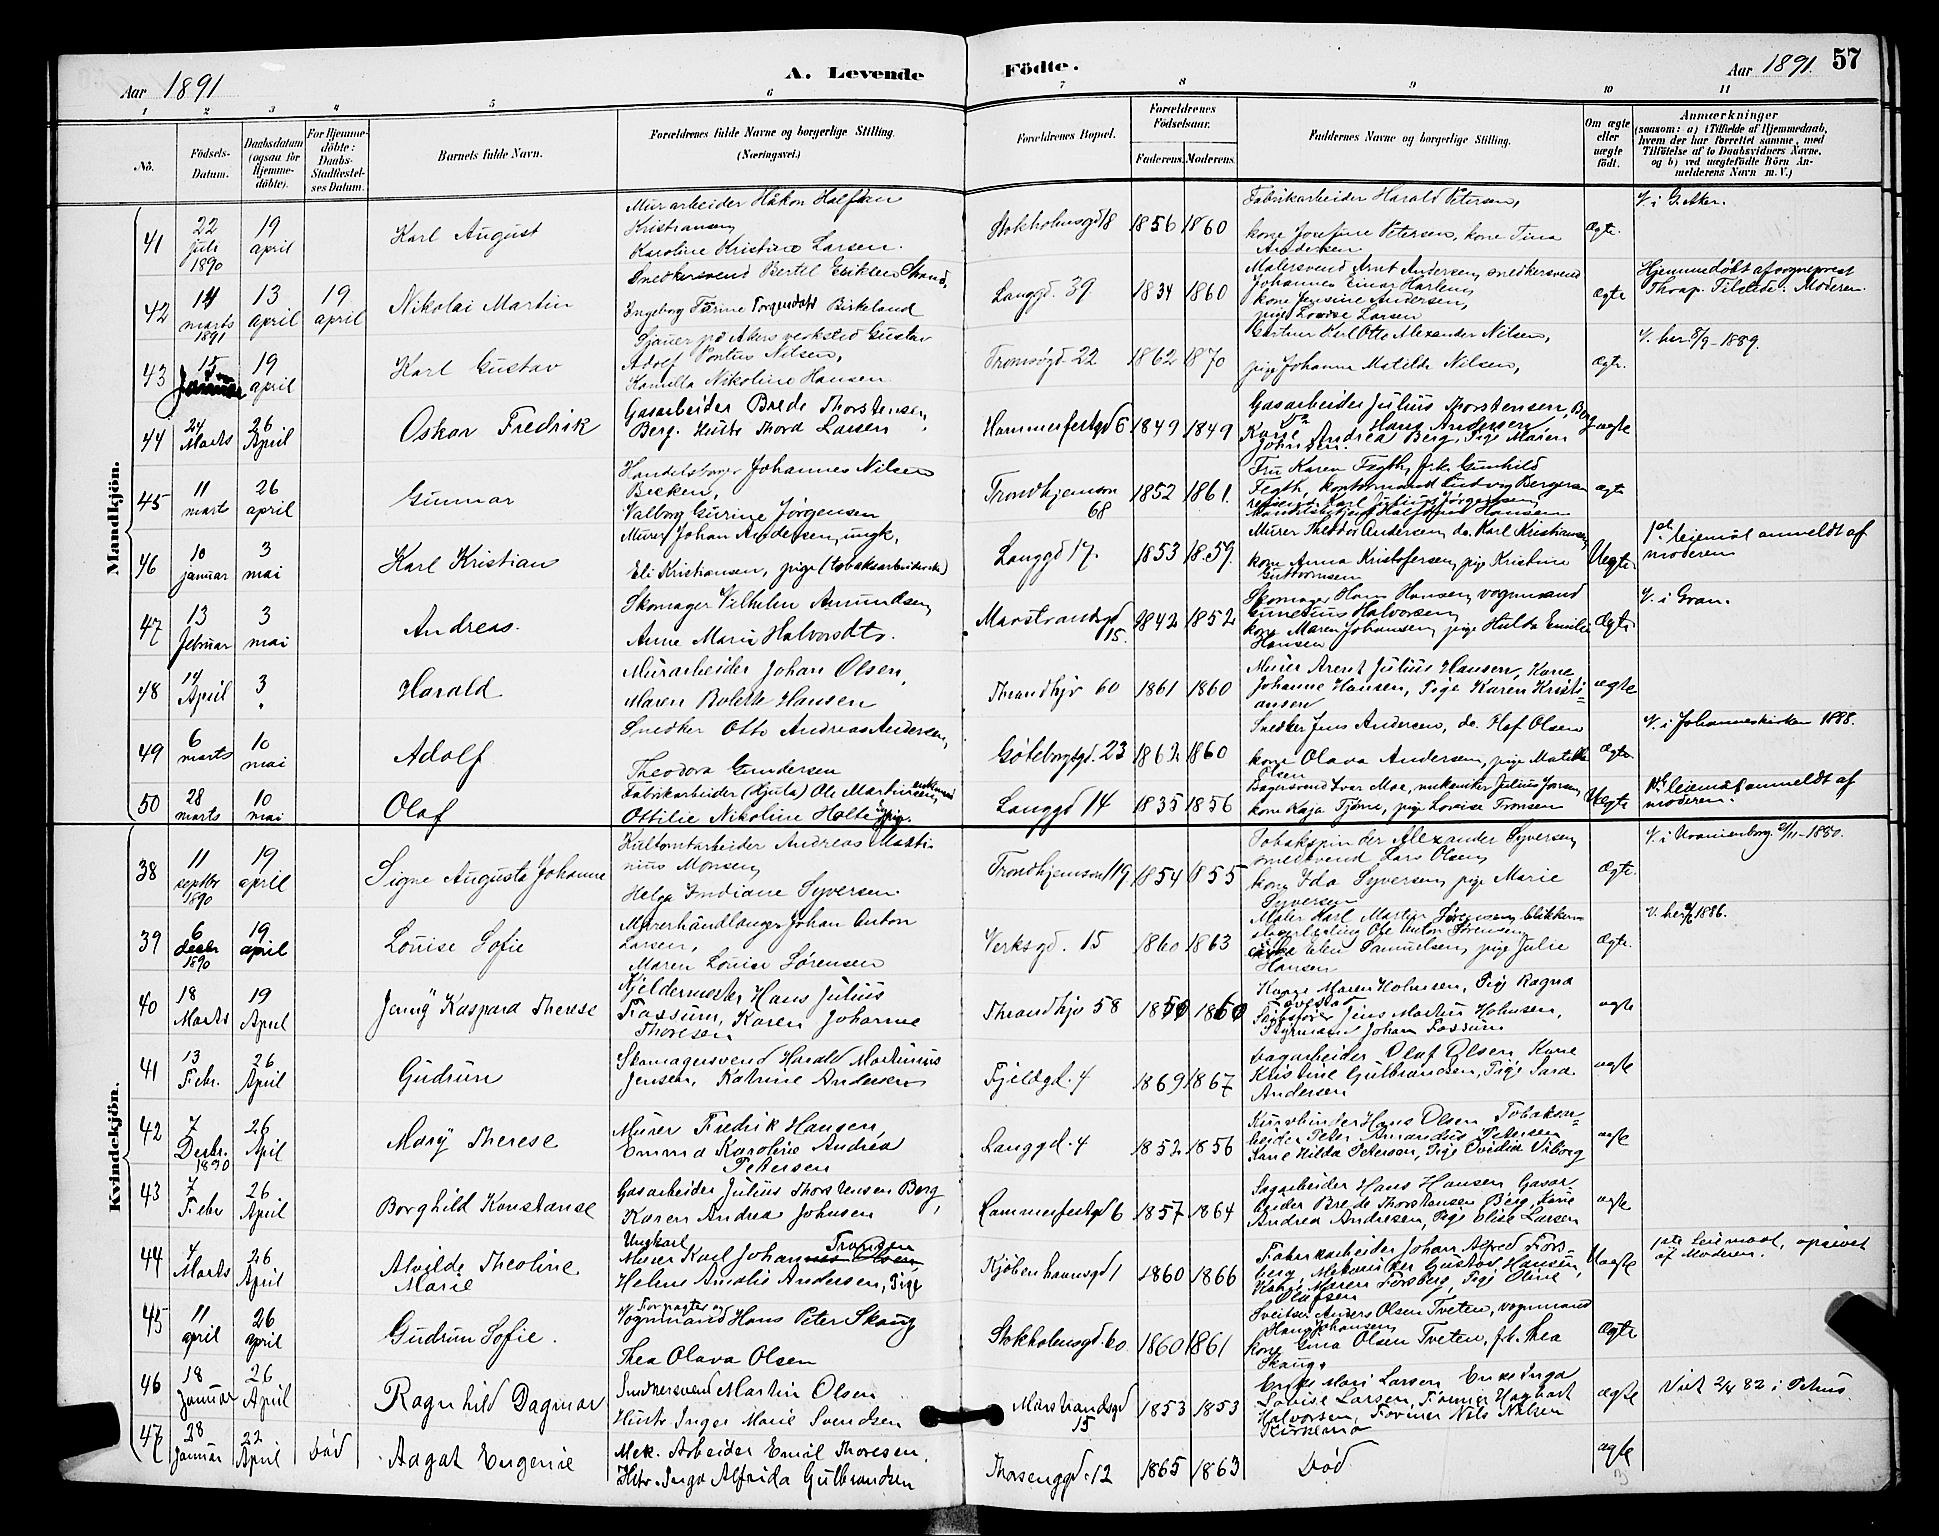 Aar 1891
A. Levende Födte.
Aar 1891. 57
1 2 3 4 5 6 7 8 9 10 11
No.
Födsels-Datum.
Daabsdatum (ogsaa for Hjemmedöbte).
For Hjemmedöbte: Daabs-Stadfæstelses Datum.
Barnets fulde Navn.
Forældrenes fulde Navne og borgerlige Stilling. (Næringsvei.)
Forældrenes Bopæl.
Forældrenes Födselsaar.
Faderens. Moderens.
Faddernes Navne og borgerlig Stilling.
Om ægte eller uægte födt.
Anmærkninger
(saasom: a) i Tilfælde af Hjemmedaab, hvem der har forrettet samme, med Tilföielse af to Daabsvidners Navne. og b) ved uægtefödte Börn Anmelderens Navn m. V.)
Mandkjön.
41 22 Juli 1890 19 april Karl August Murarbeider Håkon Halfdan Kristiansen, Karoline Kristine Larsen. Stokholmsgd 18 1856 1860 Fabrikarbeider Harald Petersen, kone Josefine Petersen, kone Tina Andersen Ægte.
42 14 marts 1891 13 april 19 april Nikolai Martin Snedkersvend Bertel Eriksen Strand, Ingeborg Birkeland Langgd. 39 1834 1860 Malersvend Arnt Andersen, snedkersvend Johannes Einar kone Jensine Andersen, pige Lovise Larsen ægte Hjemmedøbt af sogneprest Thrap. Tilstede: Moderen.
43 15 Januar 19 april Karl Gustav på Akers verksted Gustav Adolf Pontus Nilsen, Kamilla Nikoline Hansen Tromsøgd 22 1862 1870 Gartner Karl Otto Alexander Nilsen, pige Johanna Matilde Nilsen, ægt. V. her 8/9-1889.
44 24 Marts 26 April Oskar Fredrik Gasarbeider Brede Thorstensen Berg. Hustr Thora Larsen Hammerfestgd 6 1849 1849 Gasarbeider Julius Thorstensen Berg Hans Andersen, Kone Andrea Berg, Pige Maren Johnsen. ægte
45 11 marts 26 april Gunnar Johannes Nilsen Becken, Valborg Gurine Jørgensen Trondhjemsv 68 1852 1861. Fru Karen Fegth, frk. Gunhild Fegth, Ludvig Bergersen Karl Julius Jørgensen, ægt
46 10 januar 3 mai Karl Kristian Murer Johan Andersen, ungk, Eli Kristiansen, pige (tobaksarbeiderske) Langgd 17. 1853 1859. Murer Theodor Andersen, do. Karl Kristiansen, kone Anna Kristofersen, pige Kristine Guttormsen Uegte. 1ste leiemål anmeldt af moderen
47 13 februar 3 mai Andreas. Skomager Vilhelm Amundsen, Anne Marie Halvorsdtr. Marstrandsgd 15. 1842 1852 Skomager Hans Hansen, vognmand Halvorsen, kone Maren Johansen, pige Hulda Emilie Hansen Ægte V. i Gran.
48 14 April 3 " Harald Murarbeider Johan Olsen, Maren Bolette Hansen Thrandhjv 60 1861 1860 Murer Arent Julius Hansen, Kone Johanne Hansen, Pige Karen Kristiansen ægte
49 6 marts 10 mai Adolf Snedker Otto Andreas Andersen, Theodora Gundersen Gøteborgsgd. 23 1862 1860 Snedker Jens Andersen, do. Olsen kone Olava Andersen, pige Matilde Olsen Ægte V. i Johanneskirken 1888.
50 28 marts 10 mai Olaf Fabrikarbeider (Hjula) Ole Martinsen, enkemand Ottilie Nikoline Holter, pige. Langgd 14 1835 1856 Bagersvend Ivar Moe, mekaniker Julius kone Kaja Tjøme, pige Lovise Tronsen Uegte leiemål anmeldt af moderen.
Kvindekjön.
38 11 septbr 1890 19 april Signe Augusta Johanne Andreas Martinius Monsen, Helga Indiane Syversen. Trondhjemsv 119 1854 1855 Tobakspinder Alexander Syversen, smedsvend Lars Olsen, kone Ida Syversen, pige Marie Syversen Ægte. V. i Uranienborg 1880.
39 6 decbr 1890 19 april Louise Sofie Murerhandlanger Johan Anton Larsen, Maren Louise Sørensen Verksgd. 15 1860 1863 Maler Karl Martin Sørensen, Ole Anton Sørensen, Elen Samuelsen, pige Julie Hansen Ægte. V. her 1886.
40 18 Marts 19 April Jenny Kaspara Therese Kjeldermester Hans Julius Fossum, Karen Johanne Thoresen Thrandhjv 58 1850 1860 Kone Maren Holmsen, Pige Ragna Løvestad Skibsfører Jens Martin Holmsen, Styrmann Johan Fossum ægte
41 13 Febr. 26 April Gudrun Skomagersvend Harald Martinius Jensen, Katrine Andersen Fjeldgd. 4 1869 1867 Olaf Olsen, Kone Kristine Gulbrandsen, Pige Sara Andersen ægte
42 7 Decbr. 1890 26 April Mary Therese Murer Fredrik Hansen, Emma Karoline Andrea Petersen Langgd. 4 1852 1856 Kurvbinder Hans Olsen Tobaksarbeider Peter Amandus Petersen Kone Hilda Petersen, Pige Ovidia Viborg ægte
43 7 Febr 26 April Borghild Konstanse Gasarbeider Julius Thorstensen Berg, Karen Andrea Johnsen Hammerfestgd 6 1857 1864 Sagarbeider Hans Hansen Gasarbeider Brede Thorstensen Berg, Kone Andrea Andresen, Pige Elise Larsen ægte
44 7 Marts 26 April Alvilde Theoline Marie Ungkarl Murer Karl Johan Tronsen Helene Amalie Andersen, Pige Kjøbenhavnsgd 1 1860 1866 Fabrikarbeider Johan Alfred Forsberg, Mekaniker Gustav Hansen, Kone Maren Forsberg, Pige Oline Olufsen Uægte 1ste Leiemaal, opgivet af Moderen.
45 11 april 26 april Gudrun Sofie. Forpagter og Vognmand Hans Peter Skaug Thea Olava Olsen Stokholmsgd. 60 1860 1861 Sveitser Anders Olsen Tveten, vognmand Hans Johansen kone Gina Olsen Tveten, frk. Thea Skaug. Ægte
46 18 Januar 26 April Ragnhild Dagmar Martin Olsen Hustr Inger Marie Svendsen Marstrandsgd 15 1853 1853 Enke Mari Larsen Enke Inga Lovise Larsen, Former Hagbart Halvorsen, Former Nils Nilsen Kirkemo ægte Viet 2/4 82 i Petrus
47 28 Januar 22 April Død Aagot Eugenie Mek. Arbeider Emil Thoresen, Hstr. Inga Alfrida Gulbrandsen Thorsenggd. 12 1865 1863 Død ægte